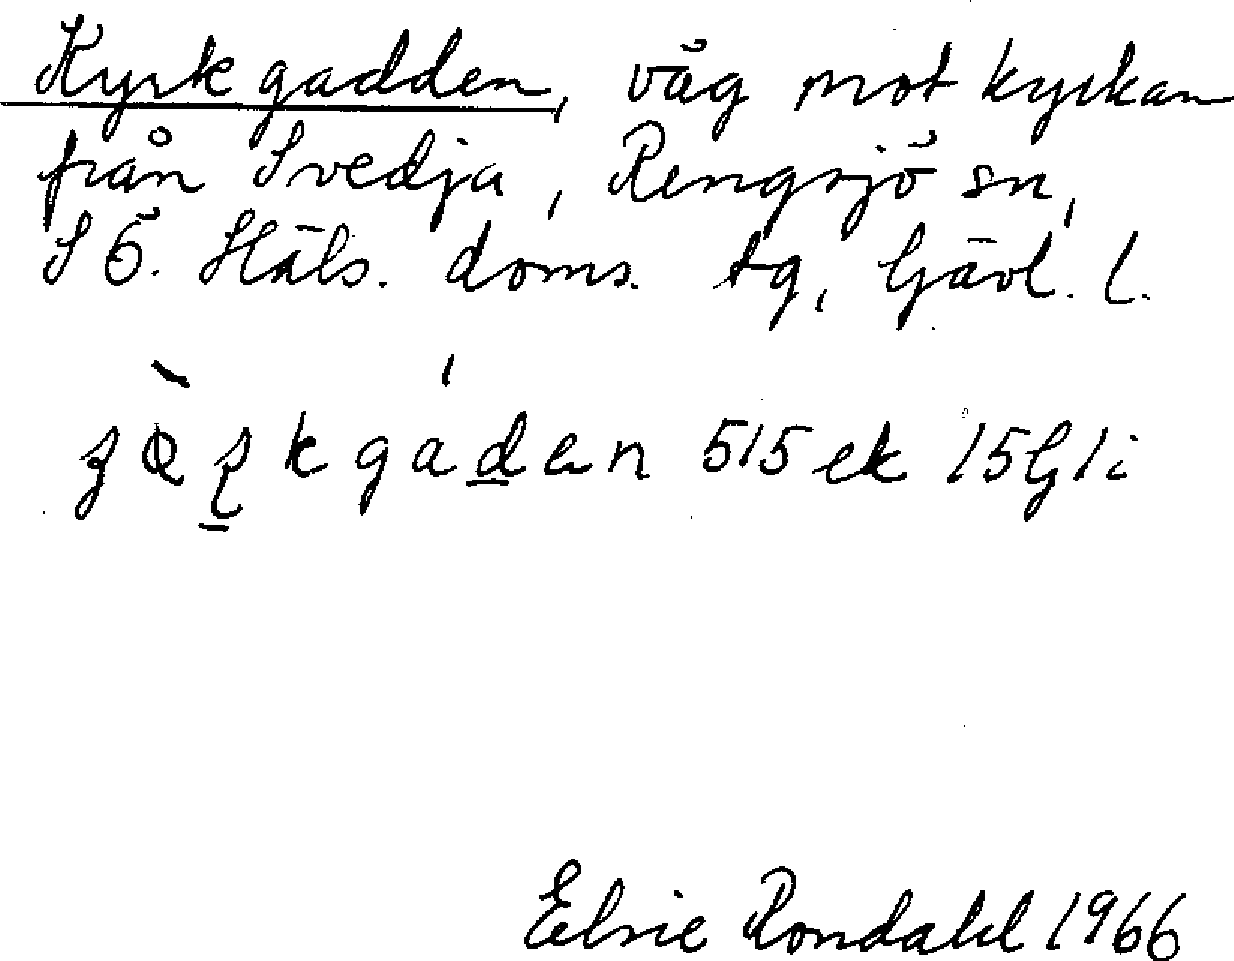 Kyrkgadden, väg mot kyrkan
från Svedja, Rengsjö sn,
SÖ. Häls. doms. tg, Gävl. l.
kgaden 515 ek 15G1i
Elsie Rondahl 1966